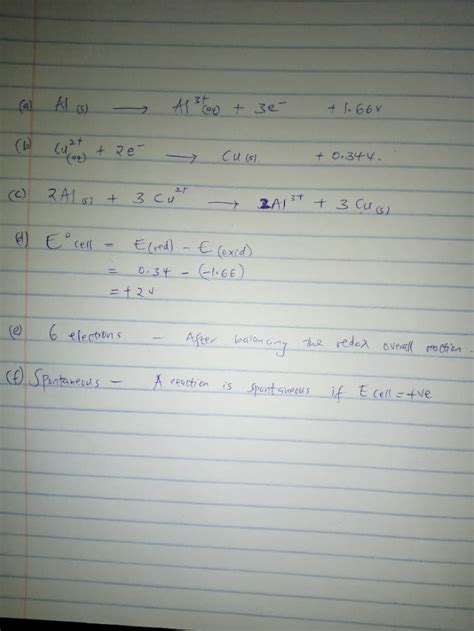 (a) Al (s) ⟶ Al³⁺(aq) + 3e⁻ +1.66v
(b) Cu²⁺(aq) + 2e⁻ ⟶ Cu(s) +0.34v.
(c) 2Al(s) + 3 Cu²⁺ ⟶ 2Al³⁺ + 3 Cu(s)
(d) E° cell = E(red) - E(oxid)
= 0.34 - (-1.66)
= +2v
(e) 6 electrons - After balancing the redox overall reaction.
(f) Spontaneous - A reaction is spontaneous if E cell = +ve